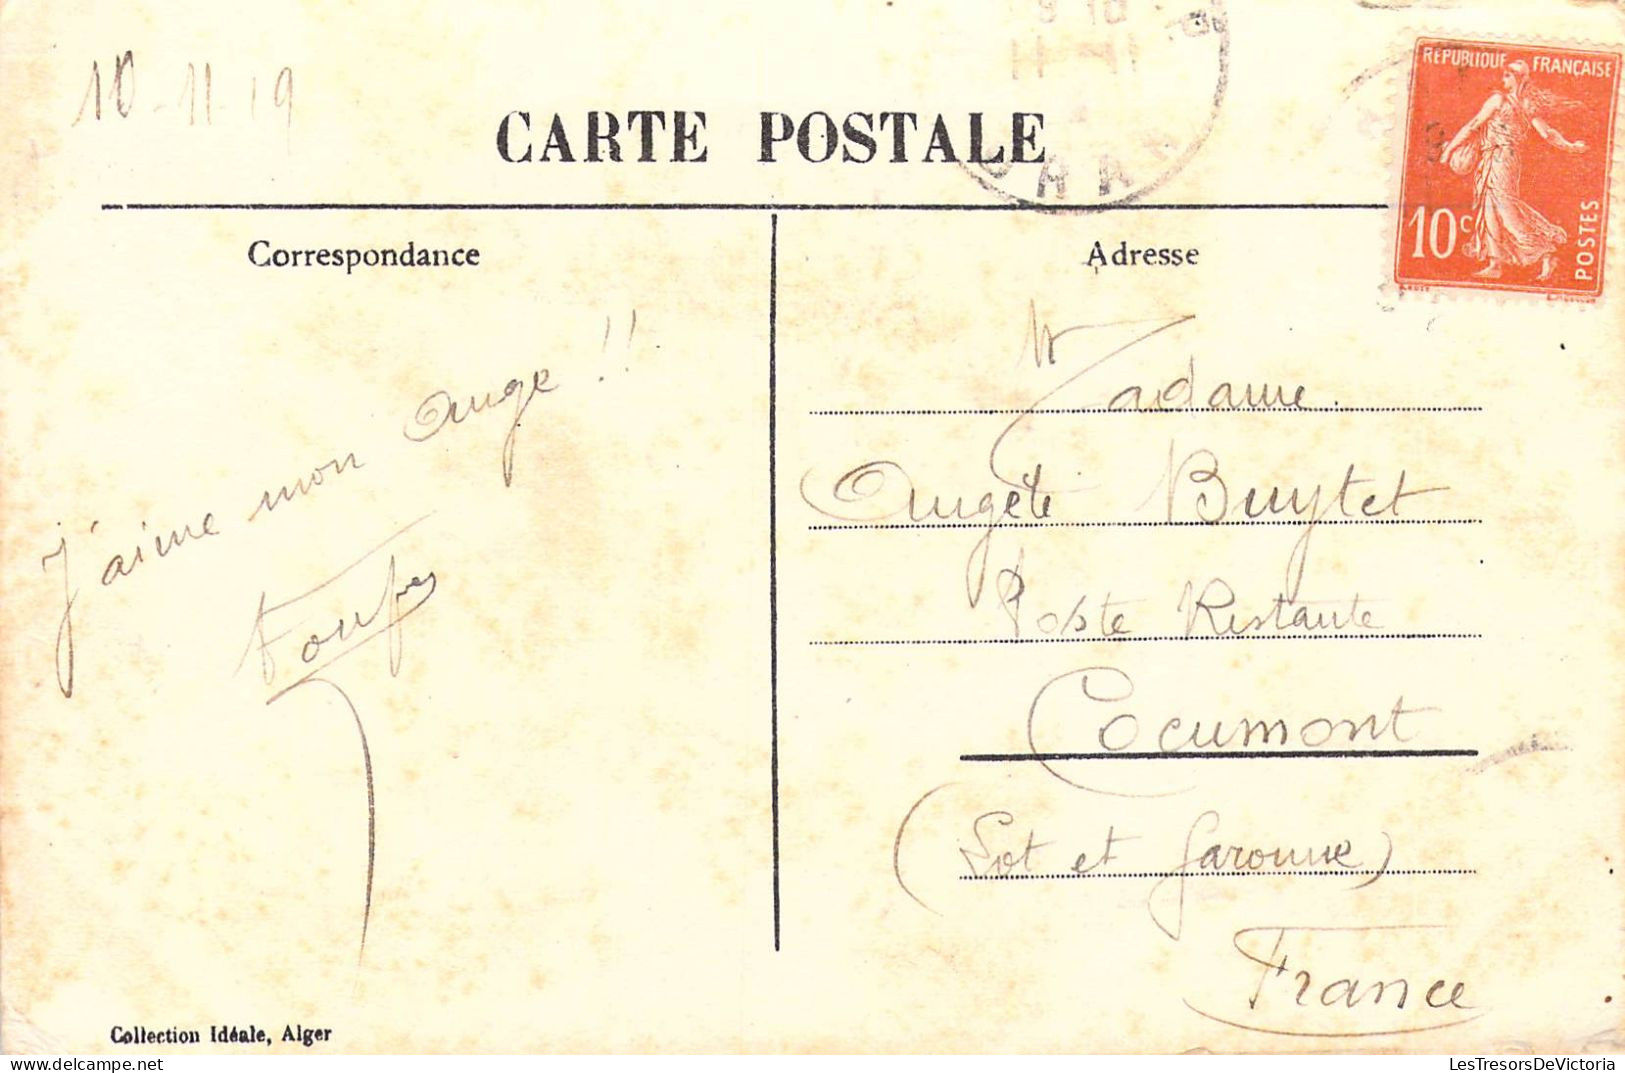 10-11-19
9 10
11 -11
ORAN
RÉPUBLIQUE FRANÇAISE
10c
POSTES
CARTE POSTALE
Correspondance
Adresse
J'aime mon ange !!
Madame
Angèle Buytet
Poste Restante
Cocumont
(Lot et Garonne)
France
Collection Idéale, Alger
LesTresorsDeVictoria